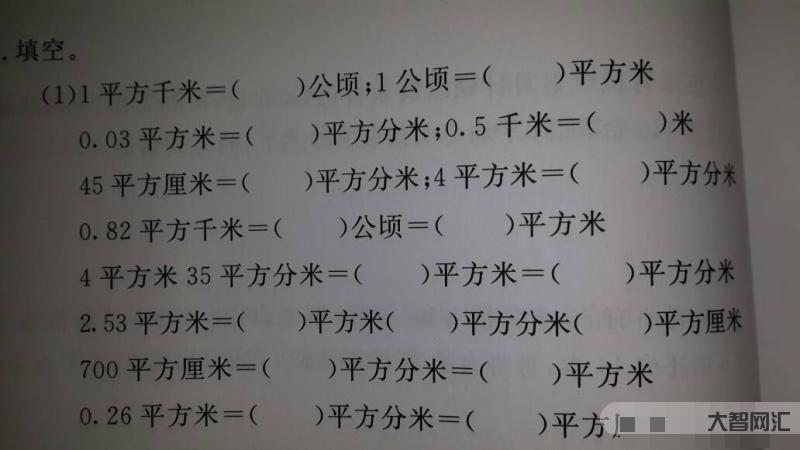 .填空。
(1)1平方千米=(    )公顷;1公顷=(    )平方米
0.03平方米=(    )平方分米;0.5千米=(    )米
45平方厘米=(    )平方分米;4平方米=(    )平方分米
0.82平方千米=(    )公顷=(    )平方米
4平方米35平方分米=(    )平方米=(    )平方分米
2.53平方米=(    )平方米(    )平方分米(    )平方厘米
700平方厘米=(    )平方分米=(    )平方米
0.26平方米=(    )平方分米=(    )平方
大智网汇